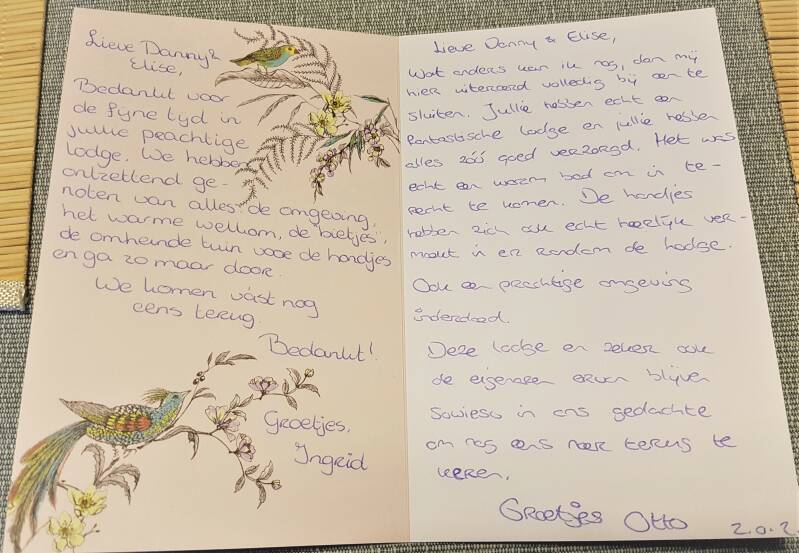 Lieve Danny &
Elise,
Bedankt voor
de fijne tijd in
jullie prachtige
lodge. We hebben
ontzettend ge-
noten van alles: de omgeving,
het warme welkom, de "bietjes",
de omheinde tuin voor de hondjes
en ga zo maar door.
We komen vást nog
eens terug.
Bedankt!
Groetjes,
Ingrid
Lieve Danny & Elise,
Wat anders kan ik nog, dan mij
hier uiteraard volledig bij aan te
sluiten. Jullie hebben echt een
fantastische lodge en jullie hebben
alles zóó goed verzorgd. Het was
echt een warm bad om in te-
recht te komen. De hondjes
hebben zich ook echt heerlijk ver-
maakt in en rondom de lodge.
Ook een prachtige omgeving
inderdaad.
Deze lodge en zeker ook
de eigenaren ervan blijven
sowieso in ons gedachte
om nog eens naar terug te
keren.
Groetjes Otto